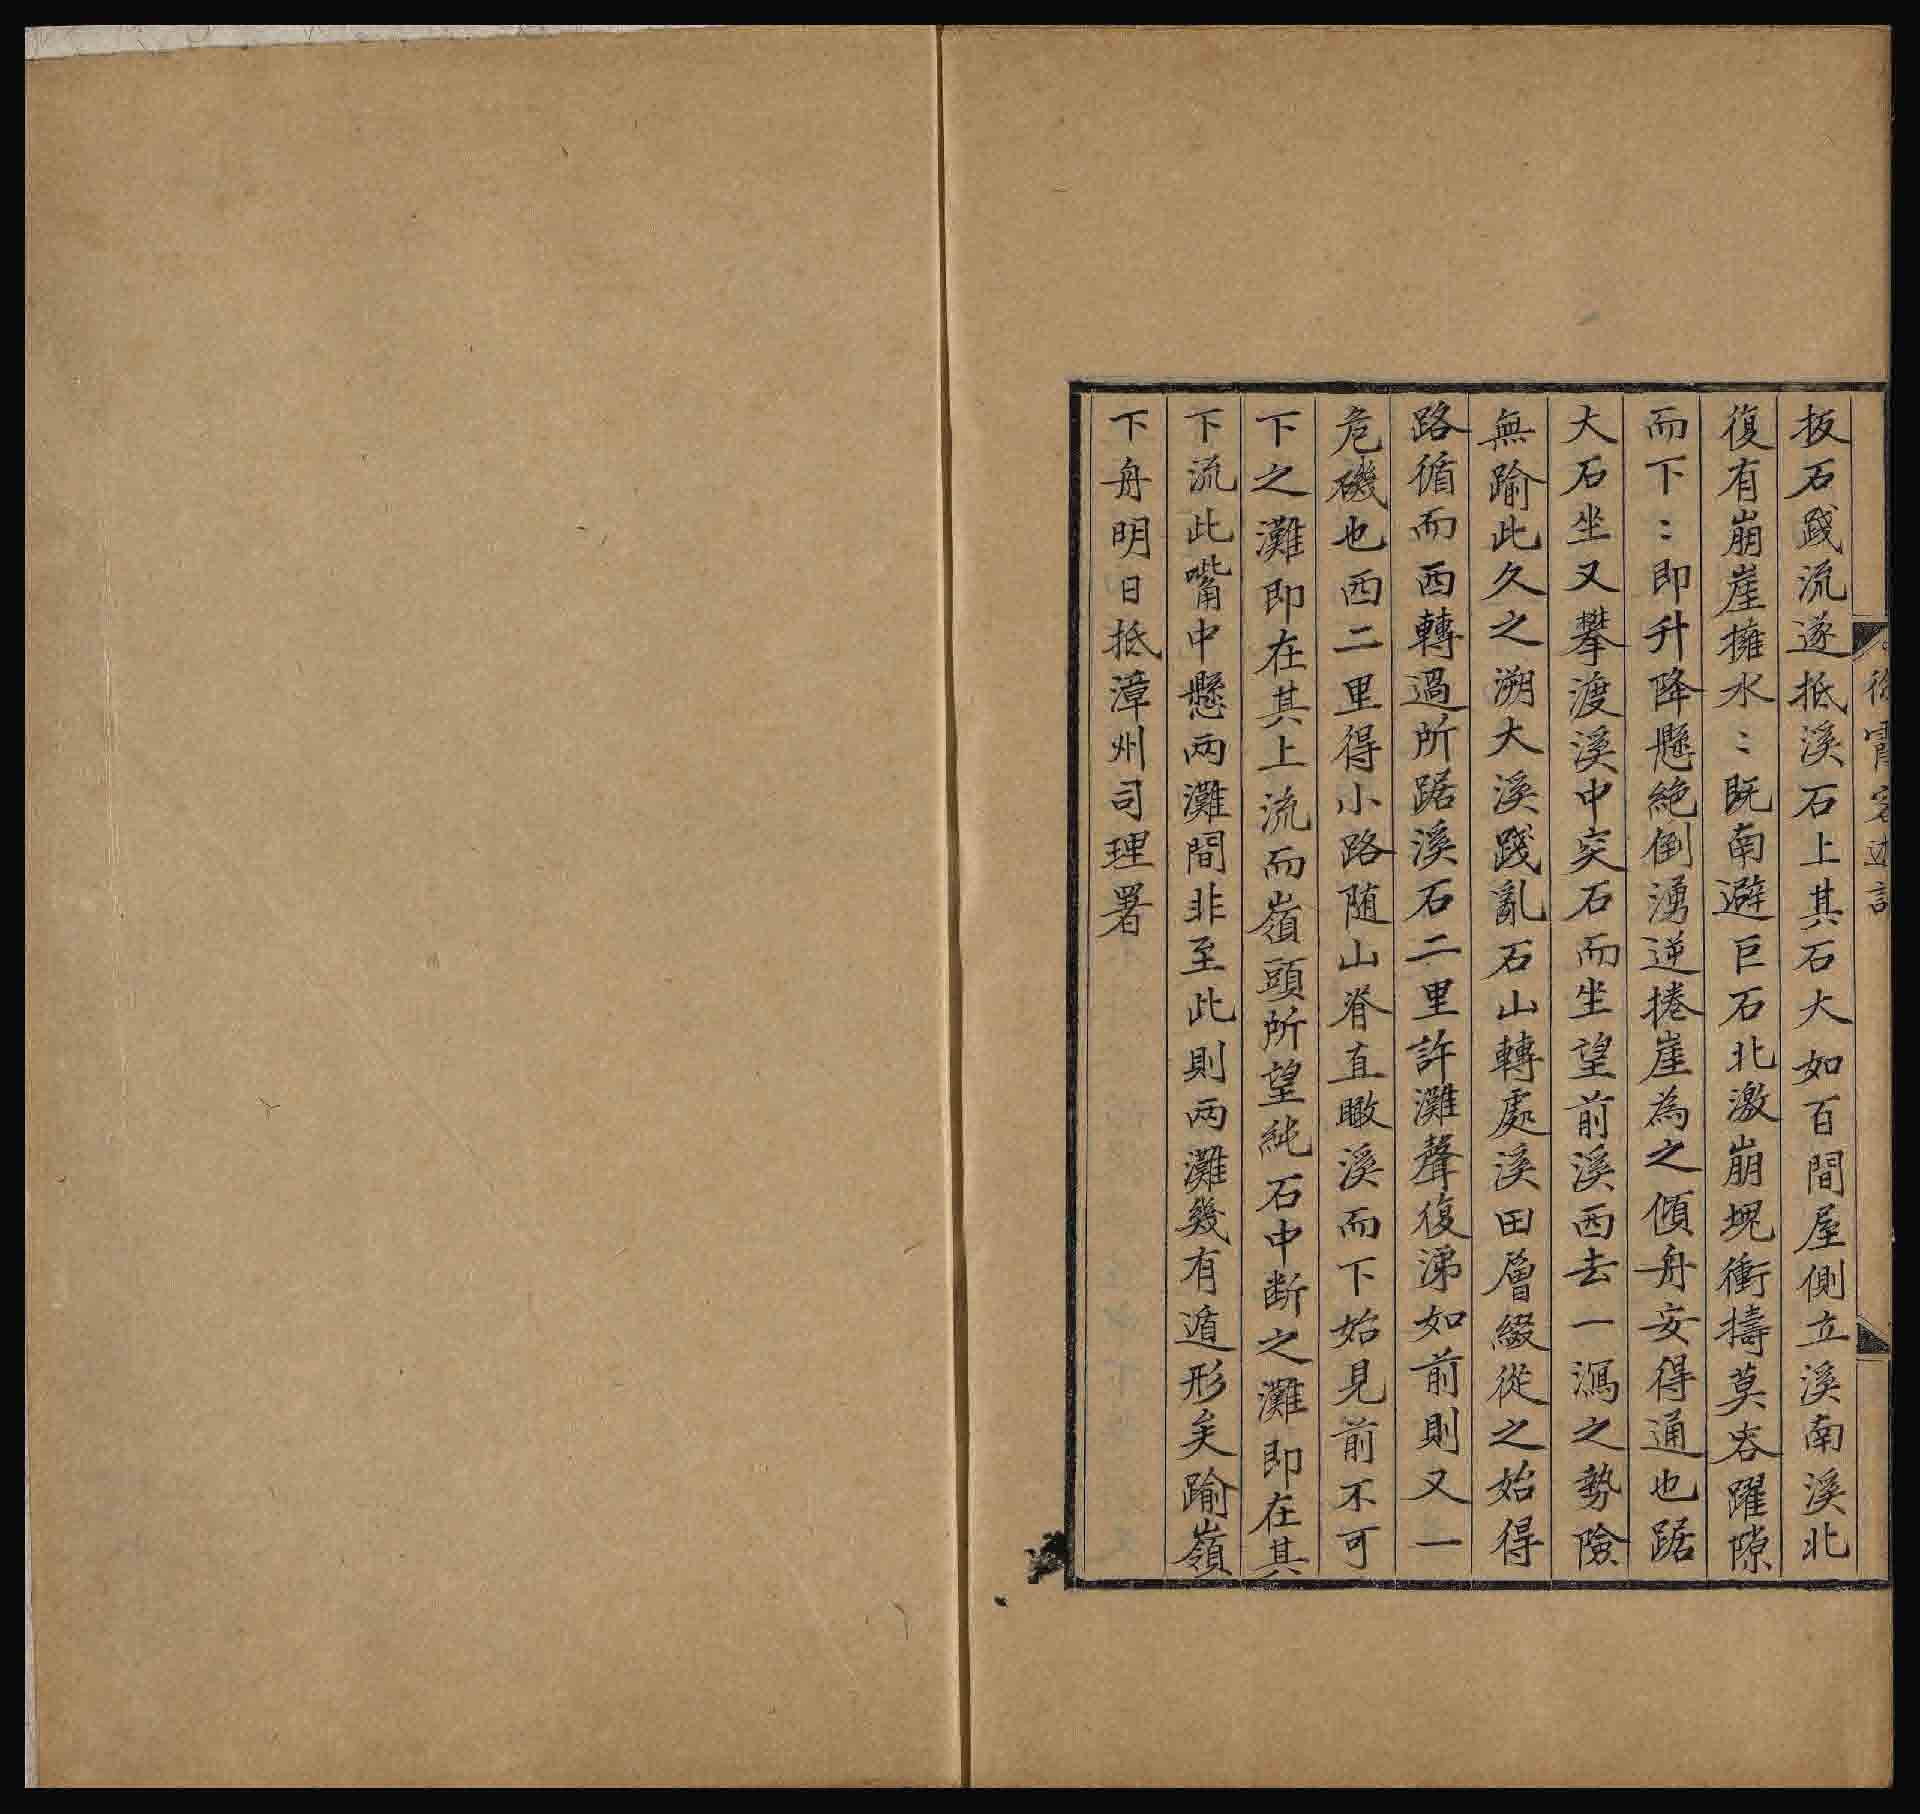 徐霞客遊記
扳石踐流遂抵溪石上其石大如百間屋側立溪南溪北
復有崩崖擁水〻既南避巨石北激崩塊衝擣莫容躍隙
而下〻即升降懸絶倒湧逆捲崖為之傾舟安得通也踞
大石坐又攀渡溪中突石而坐望前溪西去一瀉之勢險
無踰此久之溯大溪踐亂石山轉處溪田層綴從之始得
路循而西轉過所踞溪石二里許灘聲復沸如前則又一
危磯也西二里得小路随山脊直瞰溪而下始見前不可
下之灘即在其上流而嶺頭所望純石中断之灘即在其
下流此嘴中懸两灘間非至此則两灘幾有遁形矣踰嶺
下舟明日抵漳州司理署